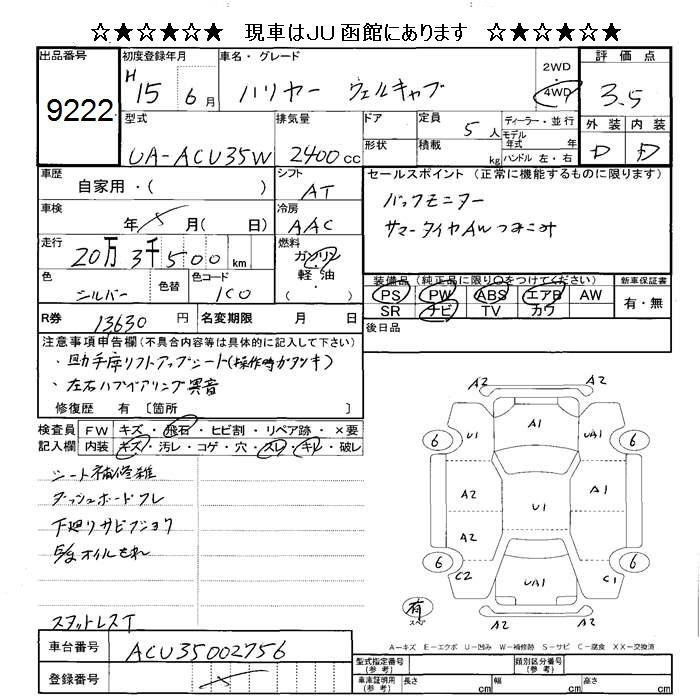 ☆★☆★☆☆ 現車はJU函館にあります ☆★☆★☆★
出品番号
9222
初度登録年月
H15 6月
車名・グレード
ハリヤー ウェルキャブ
2WD
4WD
評価点
3.5
型式
UA-ACU35W
排気量
2400cc
ドア
形状
定員 5人
積載 kg
ディーラー・並行
モデル年式 年
ハンドル 左・右
外装 内装
D D
車歴
自家用・( )
シフト
AT
車検
年 月( 日)
冷房
AAC
走行
20万3千500km
燃料
ガソリン
軽・油
( )
色
シルバー
色替
色コード
1C0
セールスポイント(正常に機能するものに限ります)
バックモニター
サマータイヤAWつみこみ
装備品(純正品に限り○をつけてください)
PS PW ABS エアB AW
SR ナビ TV カワ
新車保証書
有・無
後日品
R券 13630円
名変期限 月 日
注意事項申告欄(不具合内容等は具体的に記入して下さい)
・助手席リフトアップシート(操作時ガタツキ)
・左右ハブベアリング異音
修復歴 有〔箇所 〕
検査員記入欄
FW キズ・飛石・ヒビ割・リペア跡・×要
内装 キズ・汚レ・コゲ・穴・スレ・キレ・破レ
シート補修種
ダッシュボードフレ
下廻りサビフショク
E/gオイルもれ
スタットレスT
A2 A2
U1 A1 UA1
6 6
A2 U1 A1
A2
6 6
C2 UA1 C1
A2 A2
有
スペア
A-キズ E-エクボ U-凹み W-補修跡 S-サビ C-腐食 XX-交換済
車台番号
ACU35002756
登録番号
型式指定番号(参考)
類別区分番号(参考)
車庫証明用(参考)
長さ cm 幅 cm 高さ cm